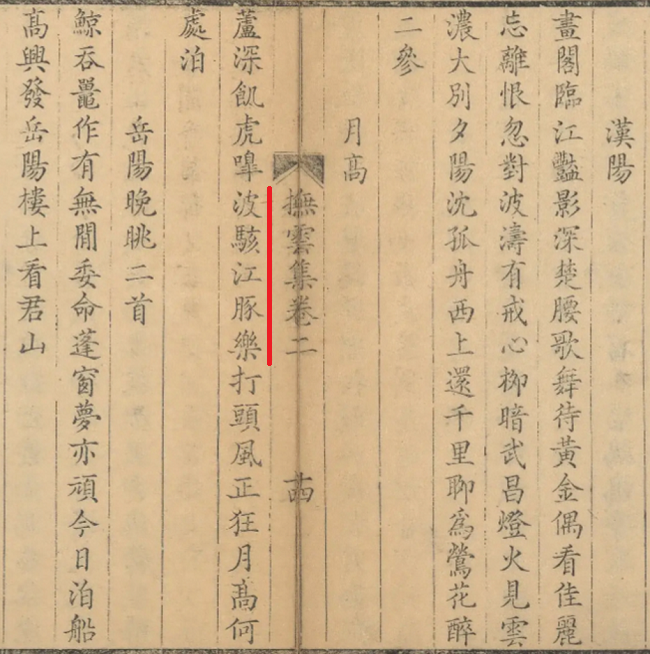 漢陽
畫閣臨江豔影深楚腰歌舞待黃金偶看佳麗
忘離恨忽對波濤有戒心柳暗武昌燈火見雲
濃大別夕陽沈孤舟西上還千里聊爲鶯花醉
二參
月高
撫雲集卷二 十四
蘆深飢虎嘷波駭江豚樂打頭風正狂月高何
處泊
岳陽晚眺二首
鯨吞鼉作有無閒委命蓬窗夢亦頑今日泊船
高興發岳陽樓上看君山